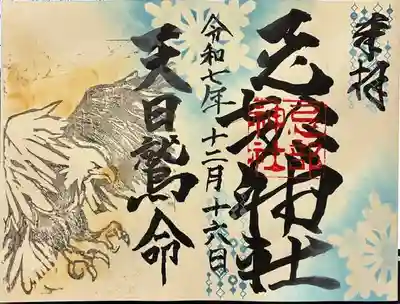 奉拝
忌部神社
忌部神社
令和七年十二月十六日
天日鷲命